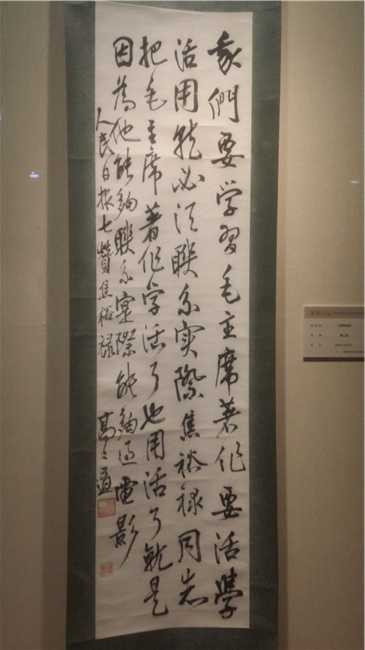 我們要学習毛主席著作要活學
活用就必须聯系实際焦裕禄同志
把毛主席著作学活了也用活了就是
因為他能夠聯系實際能夠过電影
人民日报七賛焦裕禄 高二適